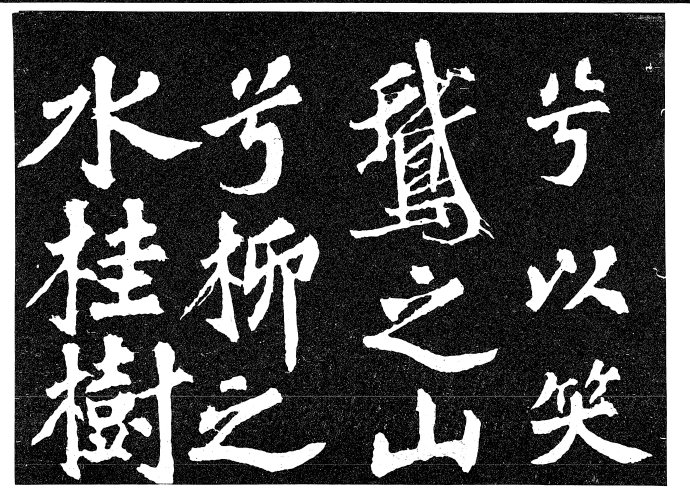 兮以笑
鵞之山
兮柳之
水桂樹